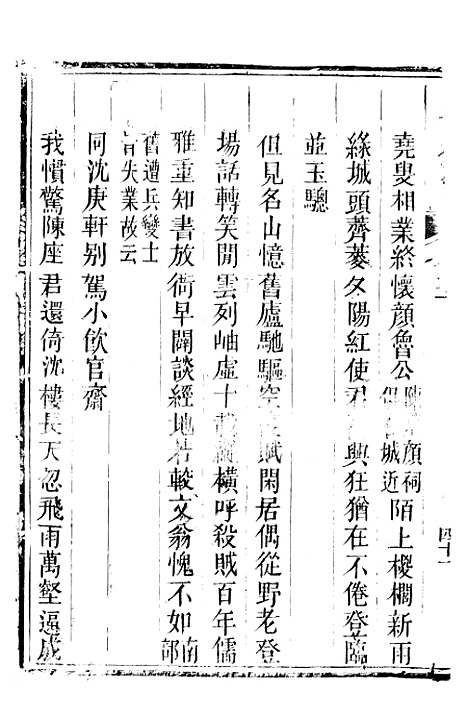 堯叟相業終懷顏魯公陳顏祠城近陌上椶櫚新雨
綠城頭薺蔆夕陽紅使君興狂猶在不倦登臨
並玉驄
但見名山憶舊廬馳驅空賦閑居偶從野老登
場話轉笑閒雲列岫虛十載縱橫呼殺賊百年儒
雅重知書放衙早闢談經地若較文翁愧不如南部
舊遭兵變士失業故云
同沈庚軒別駕小飲官齋
我慣驚陳座君還倚沈樓長天忽飛雨萬壑逼成
四十一